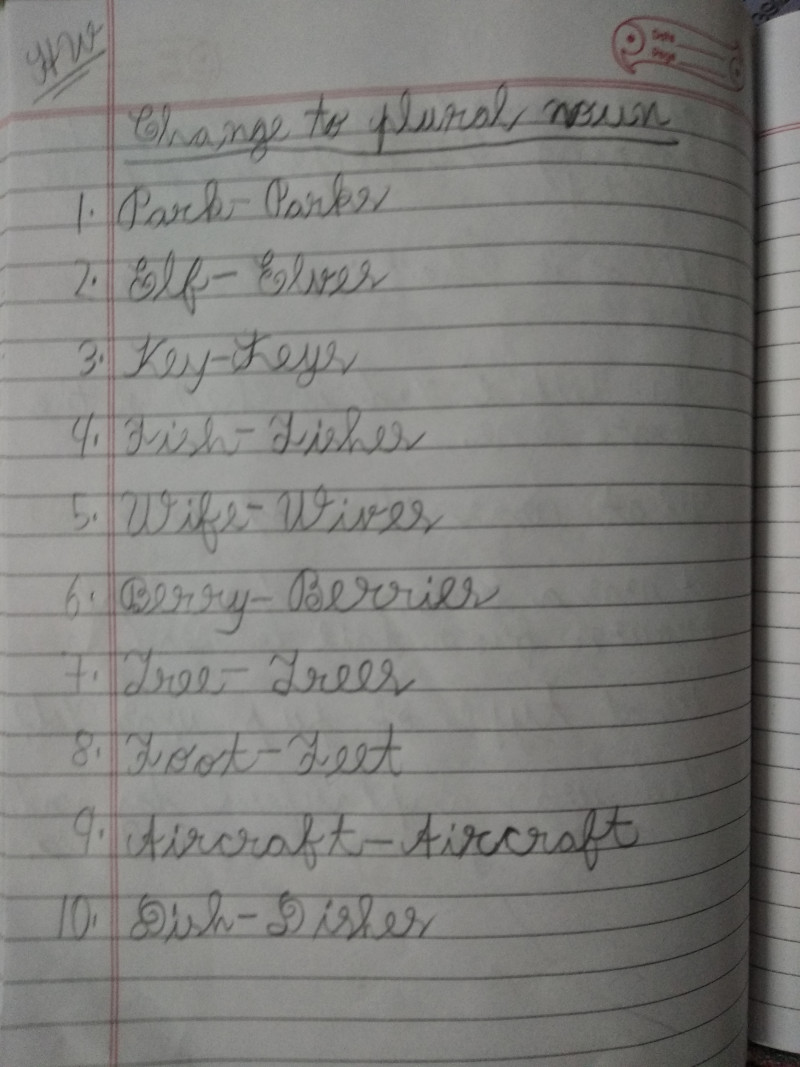 HW
Date
Page
Change to plural noun
1. Park - Parks
2. Elf - Elves
3. Key - Keys
4. Fish - Fishes
5. Wife - Wives
6. Berry - Berries
7. Tree - Trees
8. Foot - Feet
9. Aircraft - Aircraft
10. Dish - Dishes